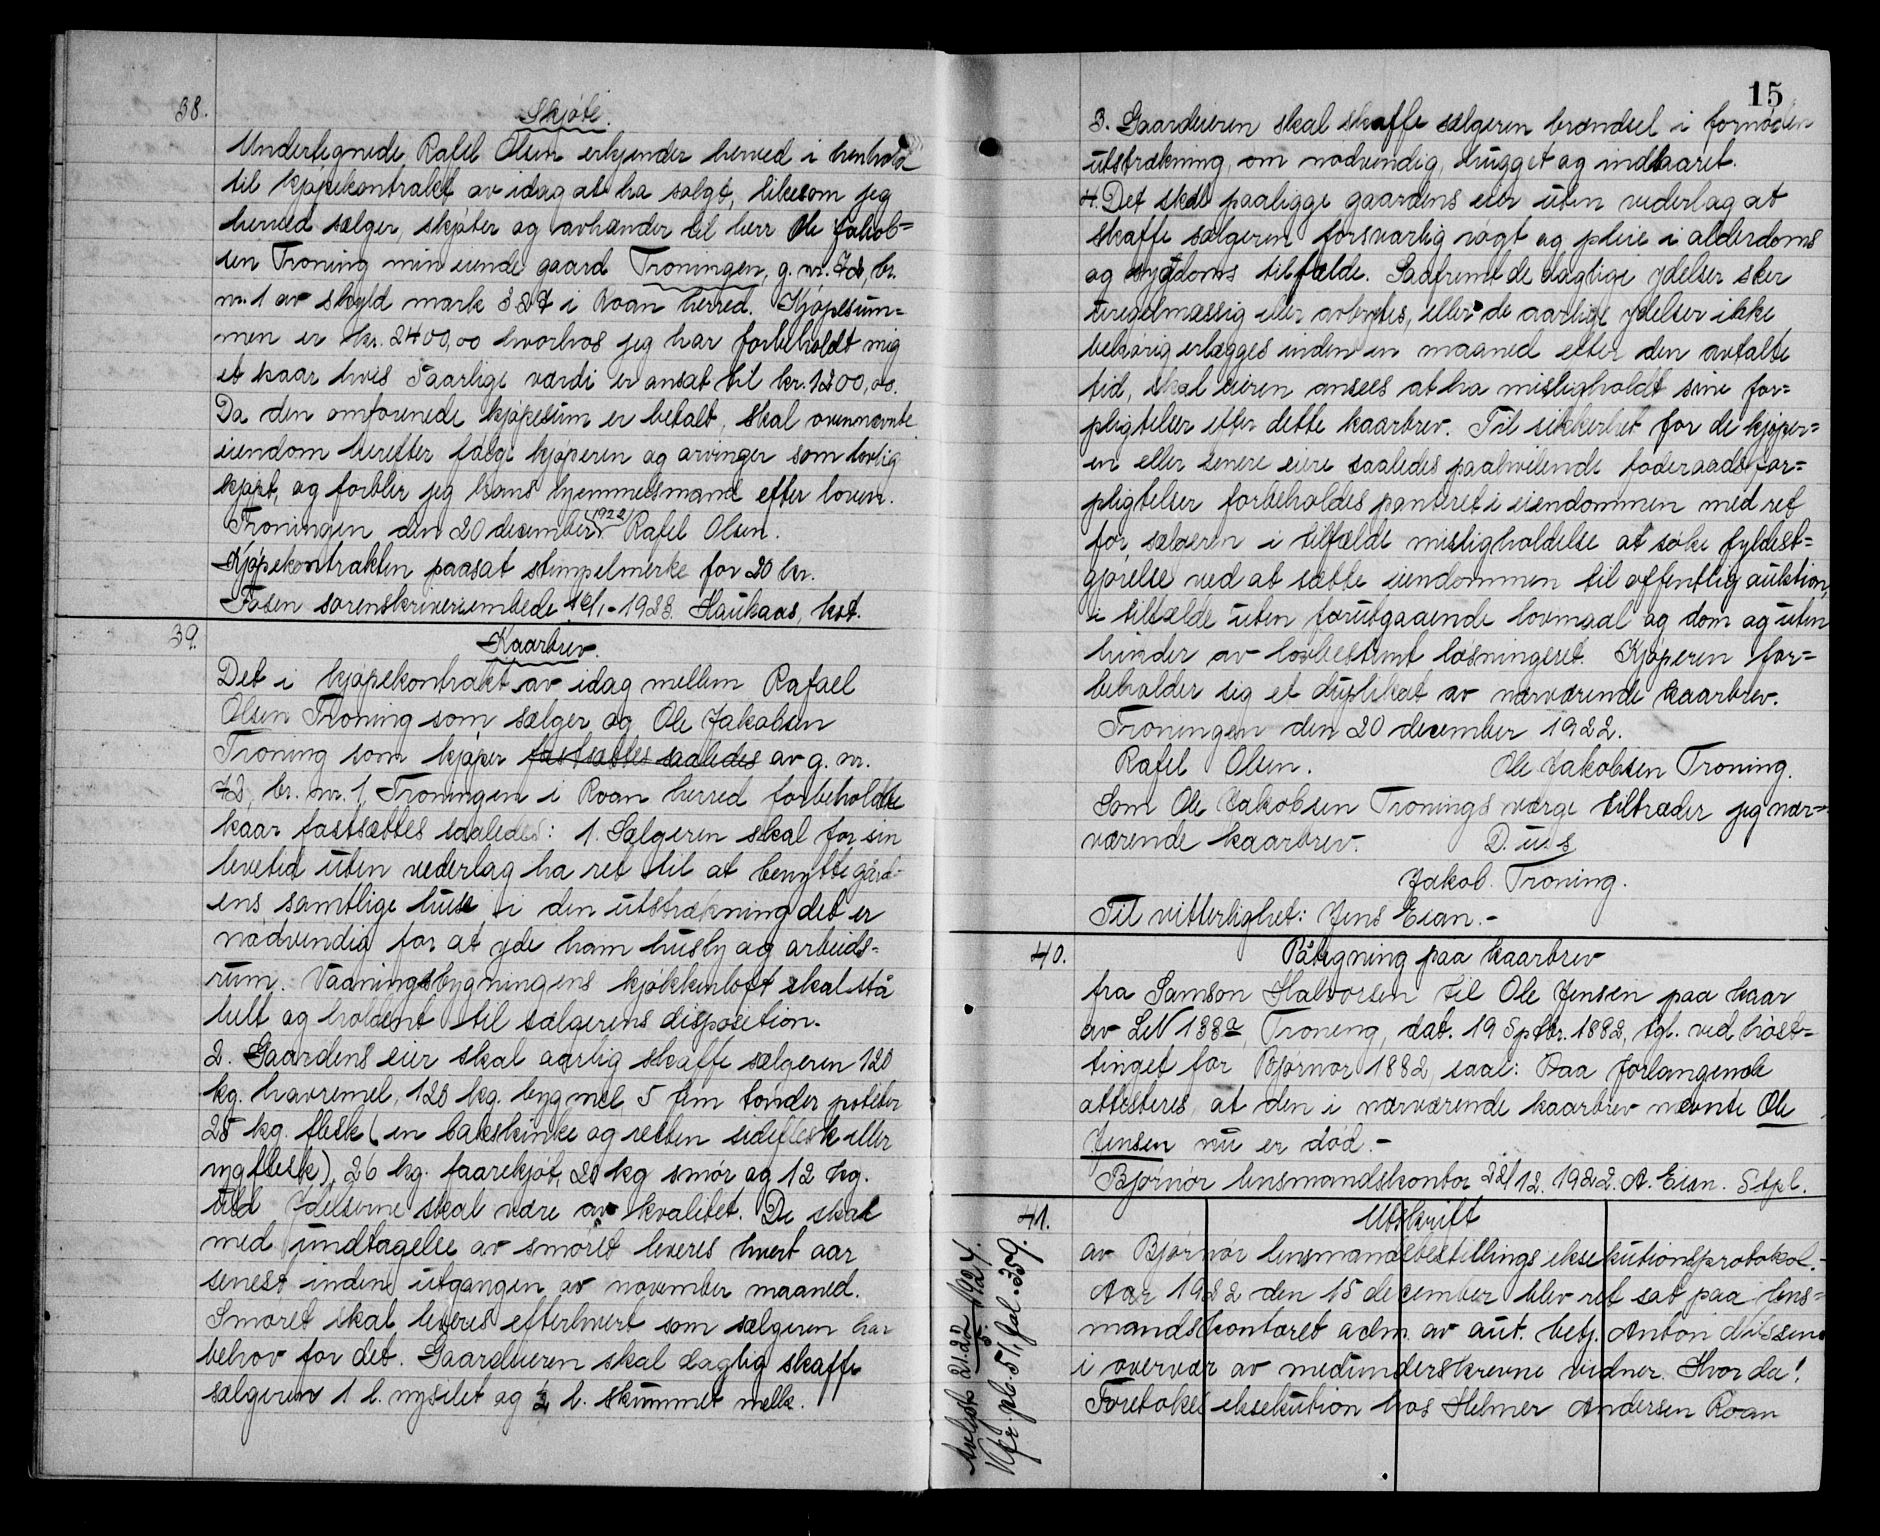 38.
Skjøte.
Undertegnede Rafel Olsen erkjender herved i henhold
til kjøpekontrakt av idag at ha solgt, likesom jeg
herved sælger, skjøter og avhænder til herr Ole Jakob=
sen Troning min eiende gaard Troningen, g. nr. 72, br.
nr. 1 av skyld mark 3 27 i Roan herred. Kjøpesum=
men er kr. 2400,00 hvorhos jeg har forbeholdt mig
et kaar hvis 5aarlige værdi er ansat til kr. 1200,00.
Da den omforenede kjøpesum er betalt, skal ovennævnte
eiendom herefter følge kjøperen og arvinger som lovlig
kjøpt, og forblir jeg hans hjemmelsmand efter loven.
Troningen den 20 december 1922 Rafel Olsen.
Kjøpekontrakten paasat stempelmerke for 20 kr.
Fosen sorenskriverembede 16/1-1923. Haukaas, kst.
39.
Kaarbrev.
Det i kjøpekontrakt av idag mellem Rafael
Olsen Troning som sælger og Ole Jakobsen
Troning som kjøper fastsættes saaledes av g. nr.
72, br. nr. 1, Troningen i Roan herred forbeholdte
kaar fastsættes saaledes: 1. Sælgeren skal for sin
levetid uten vederlag ha ret til at benytte gård-
ens samtlige huse i den utstrækning det er
nødvendig for at yde ham husly og arbeids=
rum. Vaaningsbygningens kjøkkenloft skal stå
helt og holdent til sælgerens disposition.
2. Gaardens eier skal aarlig skaffe sælgeren 120
kg. havremel, 120 kg. bygmel 5 fem tønder poteter
25 kg. flesk (en bakskinke og resten sideflesk eller
rygflesk), 26 kg. faarekjøt, 20 kg smør og 12 kg.
uld Ydelserne skal være av kvalitet. De skal
med undtagelse av smøret leveres hvert aar
senest inden utgangen av november maaned.
Smøret skal leveres efterhvert som sælgeren har
behov for det. Gaardeieren skal daglig skaffe
sælgeren 1 l. nysilet og ½ l. skummet melk.
15
3. Gaardeieren skal skaffe sælgeren brændsel i fornøden
utstrækning, om nødvendig, hugget og indbaaret.
4. Det skal paaligge gaardens eier uten vederlag at
skaffe sælgeren forsvarlig røgt og pleie i alderdoms
og sygdoms tilfælde. Saafremt de daglige ydelser sker
uregelmæssig eller avbrytes, eller de aarlige ydelser ikke
behørig erlægges inden en maaned efter den avtalte
tid, skal eieren ansees at ha misligholdt sine for=
pligtelser efter dette kaarbrev. Til sikkerhet for de kjøper=
en eller senere eiere saaledes paahvilende føderaadsfor=
pligtelser forbeholdes panteret i eiendommen med ret
for sælgeren i tilfælde misligholdelse at søke fyldest=
gjørelse ved at sætte eiendommen til offentlig auktion,
i tilfælde uten forutgaaende lovmaal og dom og uten
hinder av lovbestemt løsningsret. Kjøperen for=
beholder sig et duplikat av nærværende kaarbrev.
Troningen den 20 december 1922.
Rafel Olsen. Ole Jakobsen Troning.
Som Ole Jakobsen Tronings værge tiltræder jeg nær=
værende kaarbrev. D. u. s
Jakob Troning.
Til vitterlighet: Jens Eian.-
40.
Påtegning paa kaarbrev
fra Samson Halvorsen til Ole Jensen paa kaar
av LeN 138a, Troning, dat. 19 Septbr. 1882, tgl. ved høst=
tinget for Bjørnør 1882, saal: Paa forlangende
attesteres, at den i nærværende kaarbrev nævnte Ole
Jensen nu er død.-
Bjørnør lensmandskontor 22/12. 1922. A. Eian. Stpl.
41.
Utskrift
av Bjørnør lensmandsbestillings eksekutionsprotokol.-
Aar 1922 den 15 december blev ret sat paa lens=
mandskontoret adm. av aut. betj. Anton Nilsen
i overvær av medunderskrevne vidner. Hvor da!
Foretokes eksekution hos Helmer Andersen Roan
Avlyst 21.22/5. 1924.
Kfr. pb. 51, fol. 359.